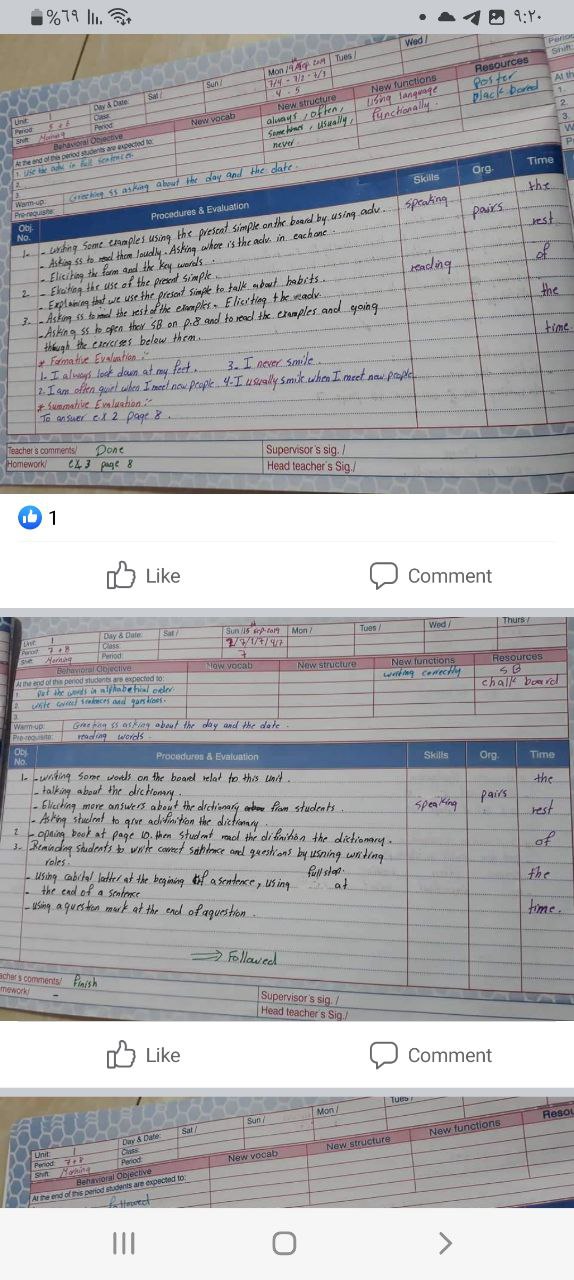 %79
9:20
Wed /
Tues /
Mon /
Sun /
Sat /
Day & Date:
Unit:
Period: 5 + 6
Period:
Shift: Morning
New vocab
New structure
New functions
Resources
always, often,
sometimes, usually,
never.
Using language
functionally.
Poster
black board
Behavioral Objective
At the end of this period students are expected to:
1. Use the adv in full sentences.
2.
3.
Warm-up: Greeting ss asking about the day and the date.
Pre-requisite:
Obj. No.
Procedures & Evaluation
Skills
Org.
Time
1- - writing some examples using the present simple on the board by using adv.
- Asking ss to read them loudly. Asking where is the adv. in each one.
- Eliciting the form and the key words.
2 - Eliciting the use of the present simple.
- Explaining that we use the present simple to talk about habits.
3- - Asking ss to read the rest of the examples. Eliciting the
- Asking ss to open their SB on p.8 and to read the examples and going
through the exercises below them.
speaking
pairs
reading
the
rest
of
the
time
* Formative Evaluation:-
1- I always look down at my feet. 3- I never smile.
2- I am often quiet when I meet new people. 4- I usually smile when I meet new people.
* Summative Evaluation:-
To answer ex 2 page 8.
Teacher's comments/ Done
Homework/ ex 3 page 8
Supervisor's sig. /
Head teacher's Sig./
1
Like
Comment
Unit: 1
Period: 7 + 8
Shift: Morning
Day & Date:
Class:
Period:
Sat /
Sun /15 Sep. 2019
Mon /
Tues /
Wed /
Thurs /
7
Behavioral Objective
New vocab
New structure
New functions
Resources
At the end of this period students are expected to:
1. Put the words in alphabetical order
2. write correct sentences and questions.
3.
writing correctly
SB
chalk board
Warm-up: Greeting ss asking about the day and the date.
Pre-requisite: reading words.
Obj. No.
Procedures & Evaluation
Skills
Org.
Time
1- - writing some words on the board relat to this unit.
- talking about the dictionary.
- Eliciting more answers about the dictionary from students.
- Asking student to give a difinition the dictionary.
2 - opning book at page 10. then student read the difinition the dictionary.
3- Reminding students to write correct sentence and questions by usning writing
roles.
- using cabital latter at the begining of a sentence, using full stop. at
the end of a sentence
- using a question mark at the end of a question.
speaking
pairs
the
rest
of
the
time.
⇒ Followed
Teacher's comments/ Finish
mework/ -
Supervisor's sig. /
Head teacher's Sig./
Like
Comment
Unit: 1
Period: 7+8
Shift: Morning
Day & Date:
Class:
Period:
Sat /
Sun /
Mon /
Tues /
New vocab
New structure
New functions
Resou
Behavioral Objective
At the end of this period students are expected to:
followed